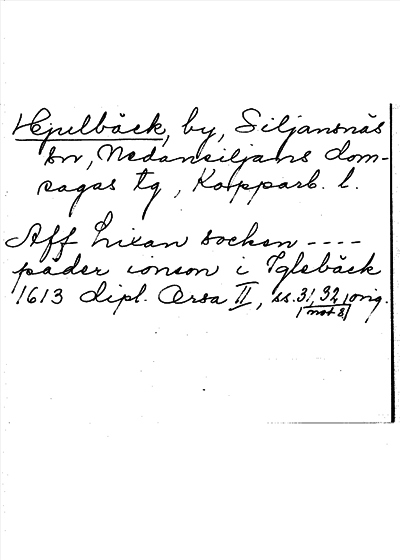 Hjulbäck, by, Siljansnäs
sn, Nedansiljans dom-
sagas tg, Kopparb. l.
Aff Lixan sochen ----
påder ionson i Iglebäck
1613 dipl. Orsa II, ss. 31, 32, orig.
not 8